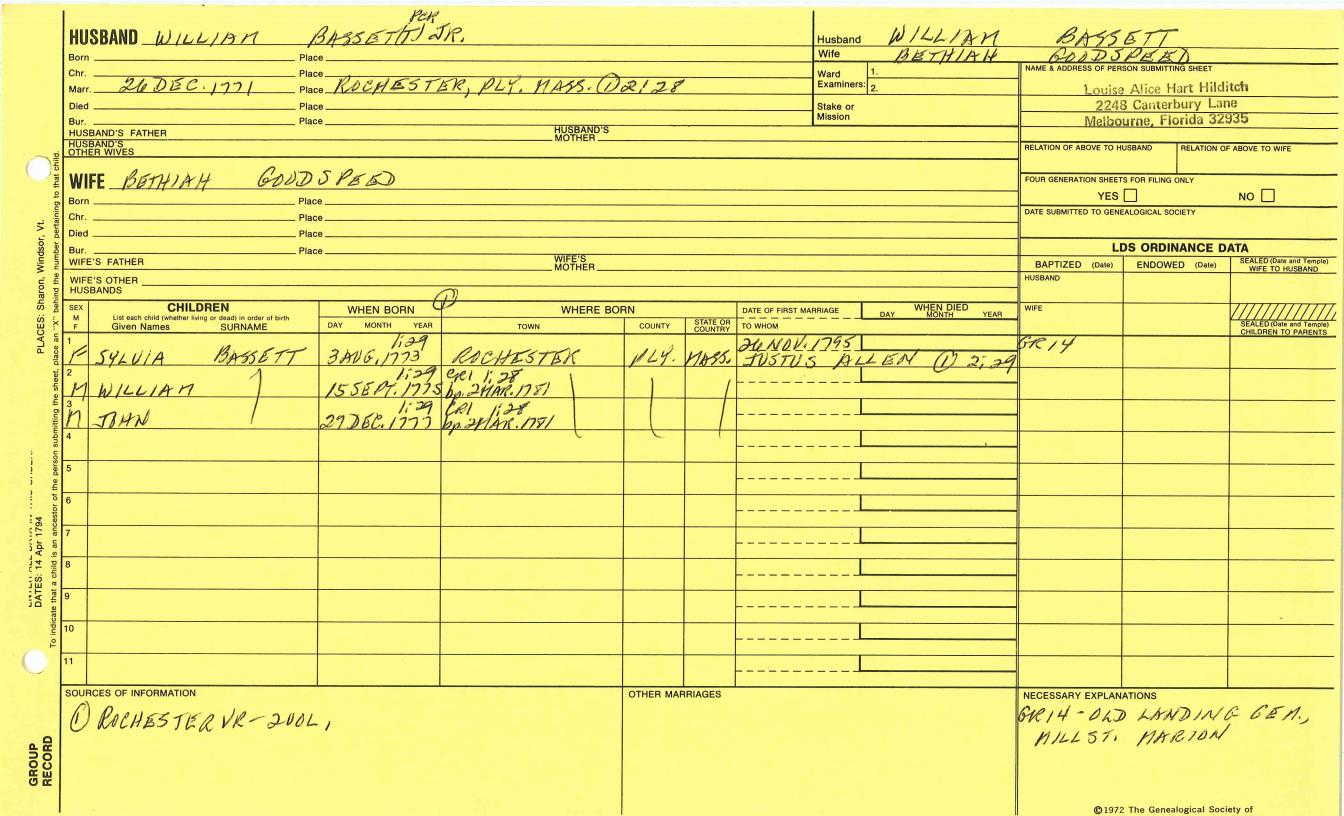 HUSBAND WILLIAM BASSETT JR. PCR
Born Place
Chr. Place
Marr. 26 DEC. 1771 Place ROCHESTER, PLY. MASS. ① 2:28
Died Place
Bur. Place
HUSBAND'S FATHER HUSBAND'S MOTHER
HUSBAND'S OTHER WIVES
WIFE BETHIAH GOODSPEED
Born Place
Chr. Place
Died Place
Bur. Place
WIFE'S FATHER WIFE'S MOTHER
WIFE'S OTHER HUSBANDS
Husband WILLIAM BASSETT
Wife BETHIAH GOODSPEED
Ward Examiners: 1.
2.
Stake or Mission
NAME & ADDRESS OF PERSON SUBMITTING SHEET
Louise Alice Hart Hilditch
2248 Canterbury Lane
Melbourne, Florida 32935
RELATION OF ABOVE TO HUSBAND RELATION OF ABOVE TO WIFE
FOUR GENERATION SHEETS FOR FILING ONLY
YES NO
DATE SUBMITTED TO GENEALOGICAL SOCIETY
LDS ORDINANCE DATA
BAPTIZED (Date) ENDOWED (Date) SEALED (Date and Temple) WIFE TO HUSBAND
HUSBAND
WIFE
SEALED (Date and Temple) CHILDREN TO PARENTS
SEX M F
CHILDREN
List each child (whether living or dead) in order of birth
Given Names SURNAME
WHEN BORN ① WHERE BORN
DAY MONTH YEAR TOWN COUNTY STATE OR COUNTRY
DATE OF FIRST MARRIAGE
TO WHOM
WHEN DIED
DAY MONTH YEAR
1 1:29 26 NOV. 1795 GR14
F SYLVIA BASSETT 3 AUG. 1773 ROCHESTER PLY. MASS. JUSTUS ALLEN ① 2:29
2 1:29 CR1 1:28
M WILLIAM 15 SEPT. 1775 bp. 2 MAR. 1781
3 1:29 CR1 1:28
M JOHN 29 DEC. 1777 bp. 2 MAR. 1781
4
5
6
7
8
9
10
11
SOURCES OF INFORMATION
① ROCHESTER VR - 2 VOL,
OTHER MARRIAGES
NECESSARY EXPLANATIONS
GR14 - OLD LANDING CEM.,
MILL ST. MARION
©1972 The Genealogical Society of
PLACES: Sharon, Windsor, Vt.
DATES: 14 Apr 1794
To indicate that a child is an ancestor of the person submitting the sheet, place an "X" behind the number pertaining to that child.
GROUP RECORD